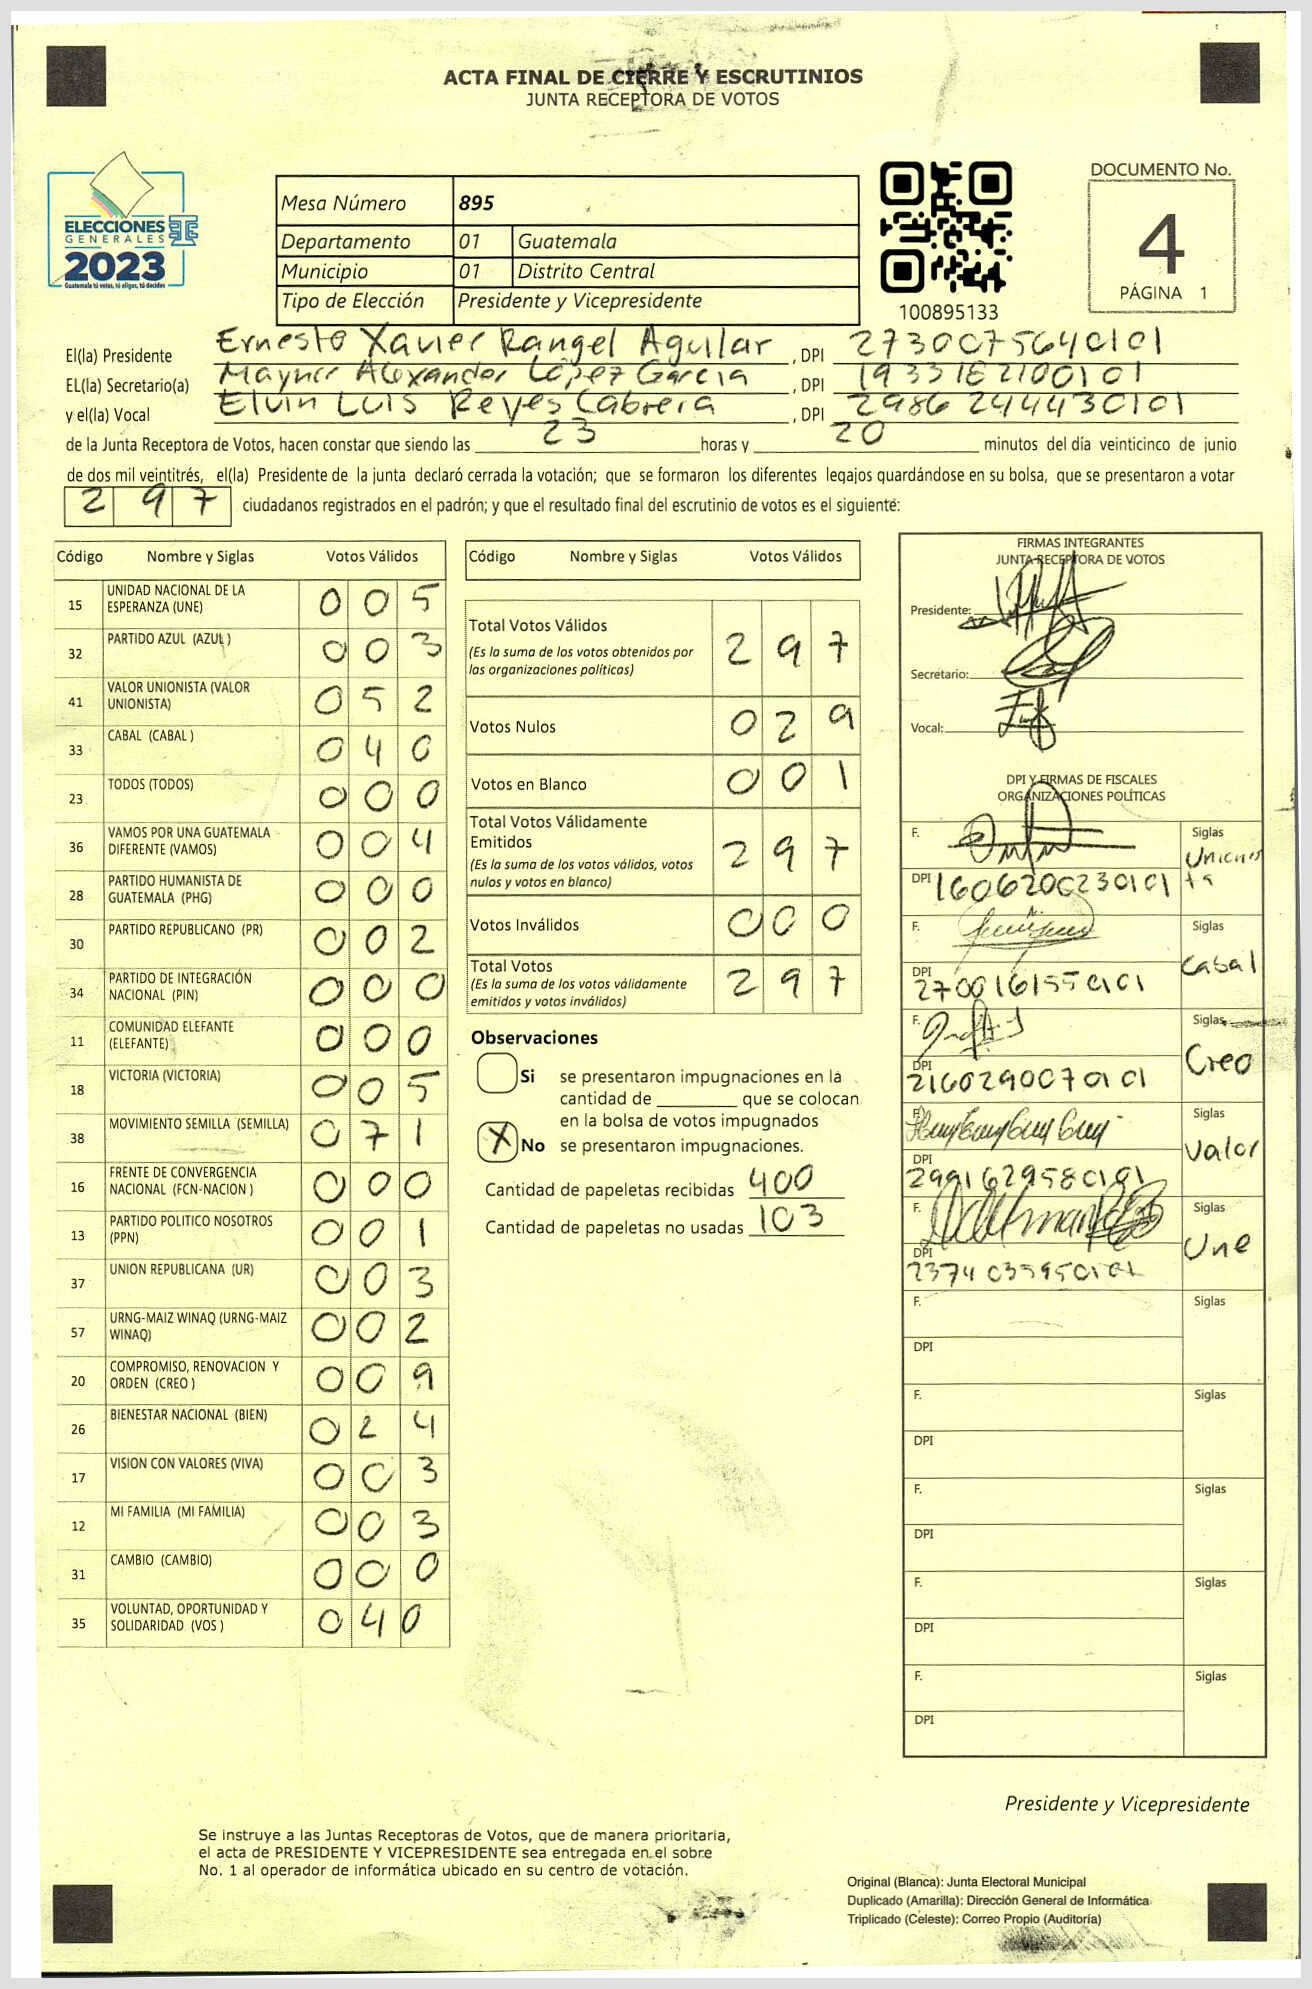 ACTA FINAL DE CIERRE Y ESCRUTINIOS
JUNTA RECEPTORA DE VOTOS
ELECCIONES
GENERALES
2023
Guatemala tú votas, tú eliges, tú decides
Mesa Número 895
Departamento 01 Guatemala
Municipio 01 Distrito Central
Tipo de Elección Presidente y Vicepresidente
100895133
DOCUMENTO No.
4
PÁGINA 1
El(la) Presidente Ernesto Xavier Rangel Aguilar, DPI 2730075640101
EL(la) Secretario(a) Mayner Alexander López Garcia, DPI 1933162100101
y el(la) Vocal Elvin Luis Reyes Cabrera, DPI 2986244430101
de la Junta Receptora de Votos, hacen constar que siendo las 23 horas y 20 minutos del día veinticinco de junio
de dos mil veintitrés, el(la) Presidente de la junta declaró cerrada la votación; que se formaron los diferentes legajos quardándose en su bolsa, que se presentaron a votar
297 ciudadanos registrados en el padrón; y que el resultado final del escrutinio de votos es el siguiente:
Código Nombre y Siglas Votos Válidos
15 UNIDAD NACIONAL DE LA ESPERANZA (UNE) 005
32 PARTIDO AZUL (AZUL) 003
41 VALOR UNIONISTA (VALOR UNIONISTA) 052
33 CABAL (CABAL) 040
23 TODOS (TODOS) 000
36 VAMOS POR UNA GUATEMALA DIFERENTE (VAMOS) 004
28 PARTIDO HUMANISTA DE GUATEMALA (PHG) 000
30 PARTIDO REPUBLICANO (PR) 002
34 PARTIDO DE INTEGRACIÓN NACIONAL (PIN) 000
11 COMUNIDAD ELEFANTE (ELEFANTE) 000
18 VICTORIA (VICTORIA) 005
38 MOVIMIENTO SEMILLA (SEMILLA) 071
16 FRENTE DE CONVERGENCIA NACIONAL (FCN-NACION) 000
13 PARTIDO POLITICO NOSOTROS (PPN) 001
37 UNION REPUBLICANA (UR) 003
57 URNG-MAIZ WINAQ (URNG-MAIZ WINAQ) 002
20 COMPROMISO, RENOVACION Y ORDEN (CREO) 009
26 BIENESTAR NACIONAL (BIEN) 024
17 VISION CON VALORES (VIVA) 003
12 MI FAMILIA (MI FAMILIA) 003
31 CAMBIO (CAMBIO) 000
35 VOLUNTAD, OPORTUNIDAD Y SOLIDARIDAD (VOS) 040
Código Nombre y Siglas Votos Válidos
Total Votos Válidos 297
(Es la suma de los votos obtenidos por
las organizaciones políticas)
Votos Nulos 029
Votos en Blanco 001
Total Votos Válidamente
Emitidos 297
(Es la suma de los votos válidos, votos
nulos y votos en blanco)
Votos Inválidos 000
Total Votos 297
(Es la suma de los votos válidamente
emitidos y votos inválidos)
Observaciones
Si se presentaron impugnaciones en la
cantidad de ________ que se colocan
en la bolsa de votos impugnados
X No se presentaron impugnaciones.
Cantidad de papeletas recibidas 400
Cantidad de papeletas no usadas 103
FIRMAS INTEGRANTES
JUNTA RECEPTORA DE VOTOS
Presidente:
Secretario:
Vocal:
DPI Y FIRMAS DE FISCALES
ORGANIZACIONES POLÍTICAS
F. Siglas Unionista
DPI 1606200230101
F. Siglas Cabal
DPI 2700161550101
F. Siglas Creo
DPI 2160290070101
F. Siglas Valor
DPI 2991629580101
F. Siglas Une
DPI
F. Siglas
DPI
F. Siglas
DPI
F. Siglas
DPI
F. Siglas
DPI
F. Siglas
DPI
Presidente y Vicepresidente
Se instruye a las Juntas Receptoras de Votos, que de manera prioritaria,
el acta de PRESIDENTE Y VICEPRESIDENTE sea entregada en el sobre
No. 1 al operador de informática ubicado en su centro de votación.
Original (Blanca): Junta Electoral Municipal
Duplicado (Amarilla): Dirección General de Informática
Triplicado (Celeste): Correo Propio (Auditoría)